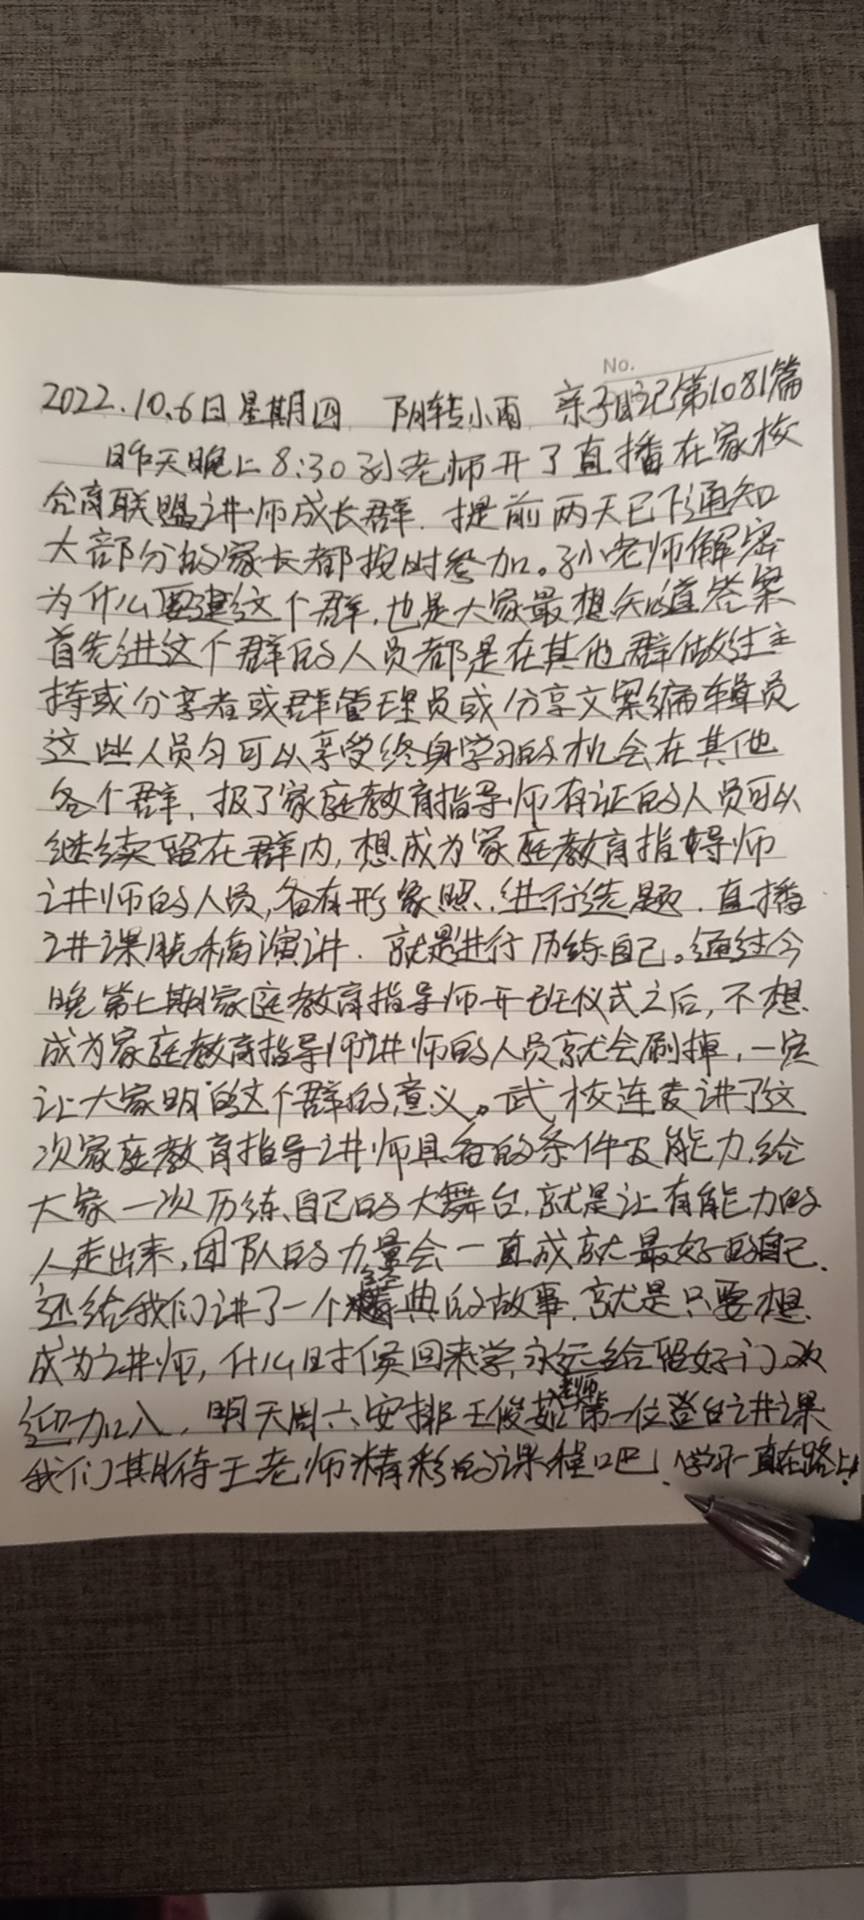 No.
2022.10.6日星期四 阴转小雨 亲子日记第1081篇
昨天晚上8:30孙老师开了直播在家校
合育联盟讲师成长群.提前两天已下通知
大部分的家长都按时参加。孙老师解密
为什么要建这个群,也是大家最想知道答案
首先进这个群的人员都是在其他群做过主
持或分享者或群管理员或分享文案编辑员
这些人员勻可以享受终身学习的机会在其他
各个群,报了家庭教育指导师有证的人员可以
继续留在群内,想成为家庭教育指导师
讲师的人员,备有形象照,进行选题.直播
讲课脱稿演讲.就是进行历练自己。通过今
晚第七期家庭教育指导师开班仪式之后,不想
成为家庭教育指导师讲师的人员就会刷掉,一定
让大家明白这个群的意义。武校连麦讲了这
次家庭教育指导讲师具备的条件及能力,给
大家一次历练自己的大舞台,就是让有能力的
人走出来,团队的力量会一直成就最好的自己.
还给我们讲了一个经典的故事.就是只要想
成为讲师,什么时候回来学,永远给留好门.欢
迎加入,明天周六安排王俊茹老师第一位登台讲课
我们期待王老师精彩的课程吧!学习一直在路上!